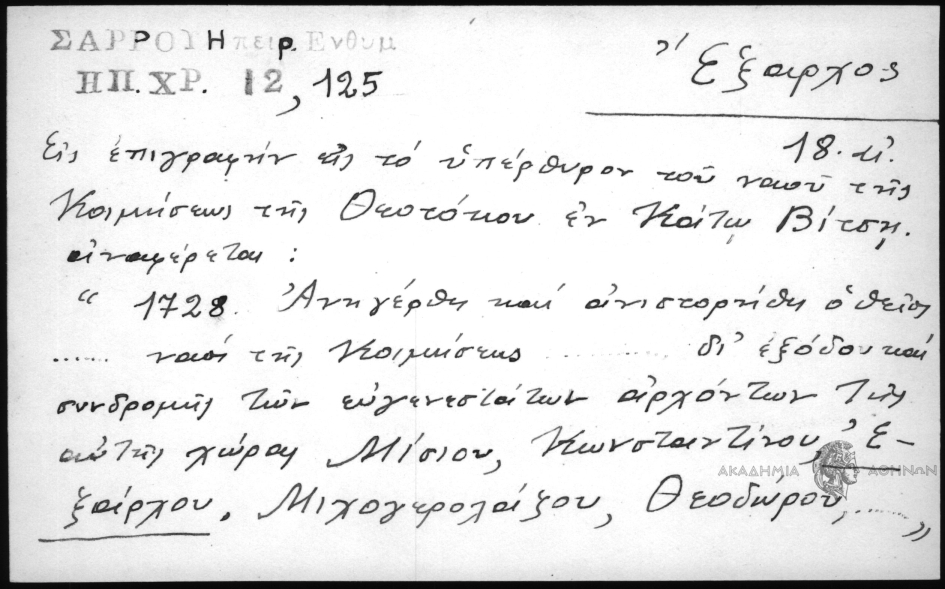 ΣΑΡΡΟΥ Ηπειρ. Ενθυμ
ΗΠ. ΧΡ. 12, 125
Ἔξαρχος
18. μ.
Εἰς ἐπιγραφήν εἰς τό ὑπέρθυρον τοῦ ναοῦ τῆς
Κοιμήσεως τῆς Θεοτόκου ἐν Κάτω Βίτσῃ.
ἀναφέρεται :
“ 1728. Ἀνηγέρθη καί ἀνιστορήθη ὁ θεῖος
...... ναός τῆς Κοιμήσεως .......... δι’ ἐξόδου καί
συνδρομῆς τῶν εὐγενεστάτων ἀρχόντων τῆς
αὐτῆς χώρας Μίσιου, Κωνσταντίνου, Ἐ-
ξάρχου, Μιχογερολάξου, Θεοδώρου, ...... ”
ΑΚΑΔΗΜΙΑ ΑΘΗΝΩΝ